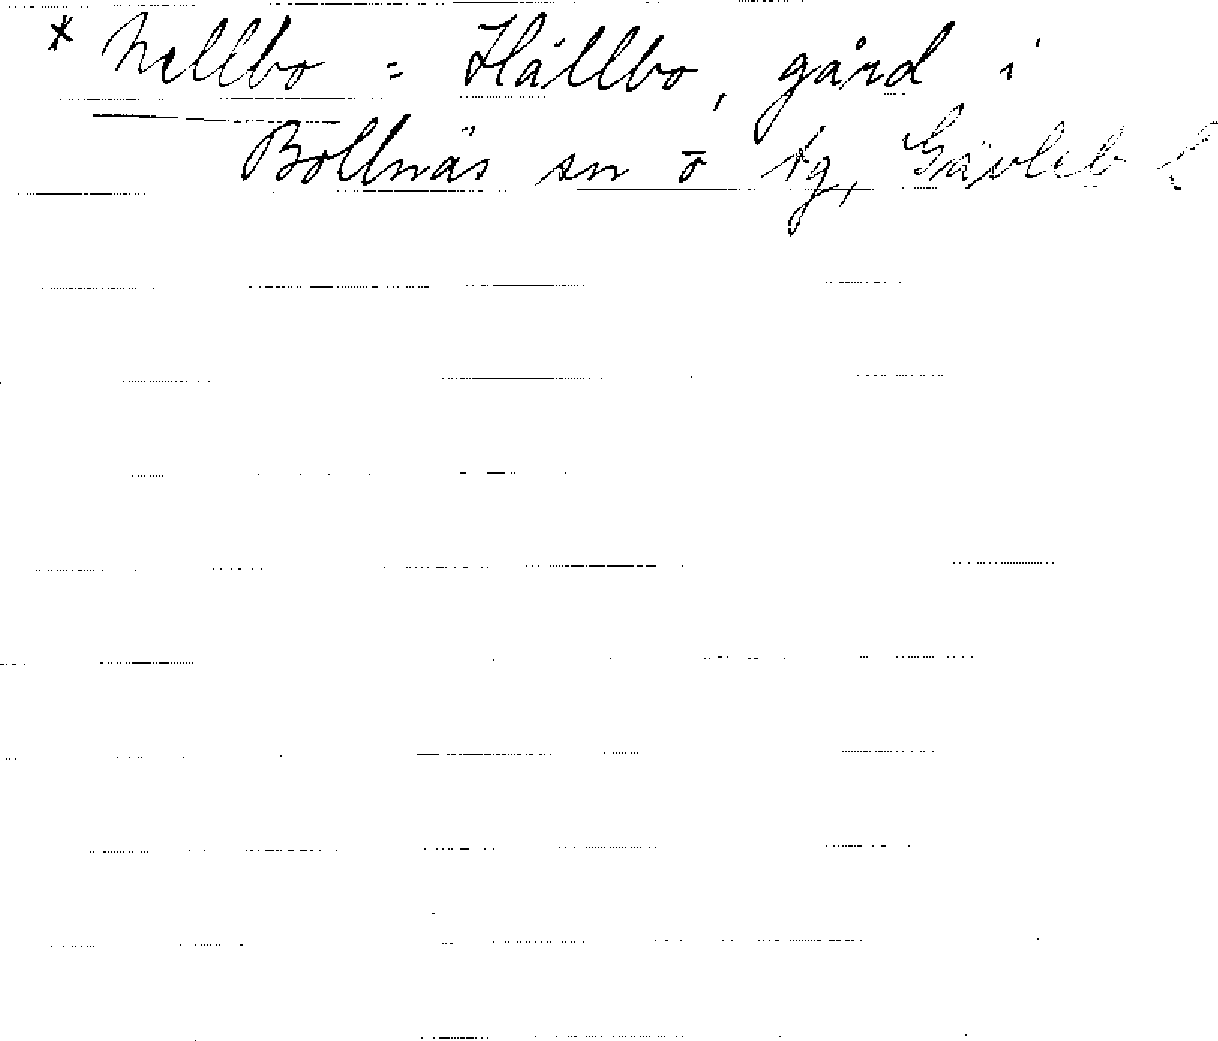 * Hellbo = Hällbo, gård i
Bollnäs sn o tg, Gävleb l